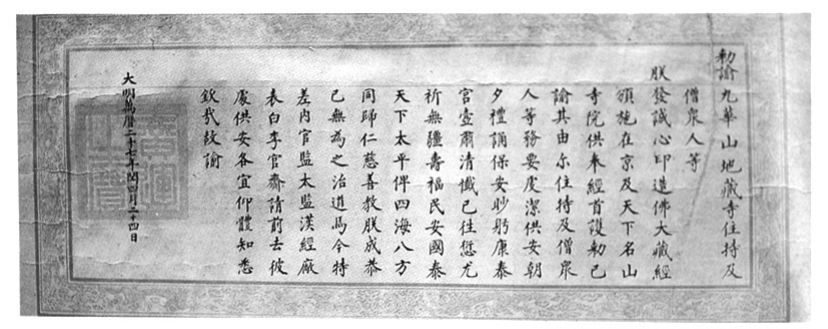 勅諭九華山地藏寺住持及
僧衆人等
朕發誠心印造佛大藏經
頒施在京及天下名山
寺院供奉經首護勅已
諭其由尔住持及僧衆
人等務要虔潔供安朝
夕禮誦保安眇躬康泰
宮壼肅清懺已徃愆尤
祈無疆壽福民安國泰
天下太平俾四海八方
同歸仁慈善教朕成恭
已無為之治道焉今特
差内官監太監漢經廠
表白李官齋請前去彼
處供安各宜仰體知悉
欽哉故諭
大明萬曆二十七年閏四月二十四日